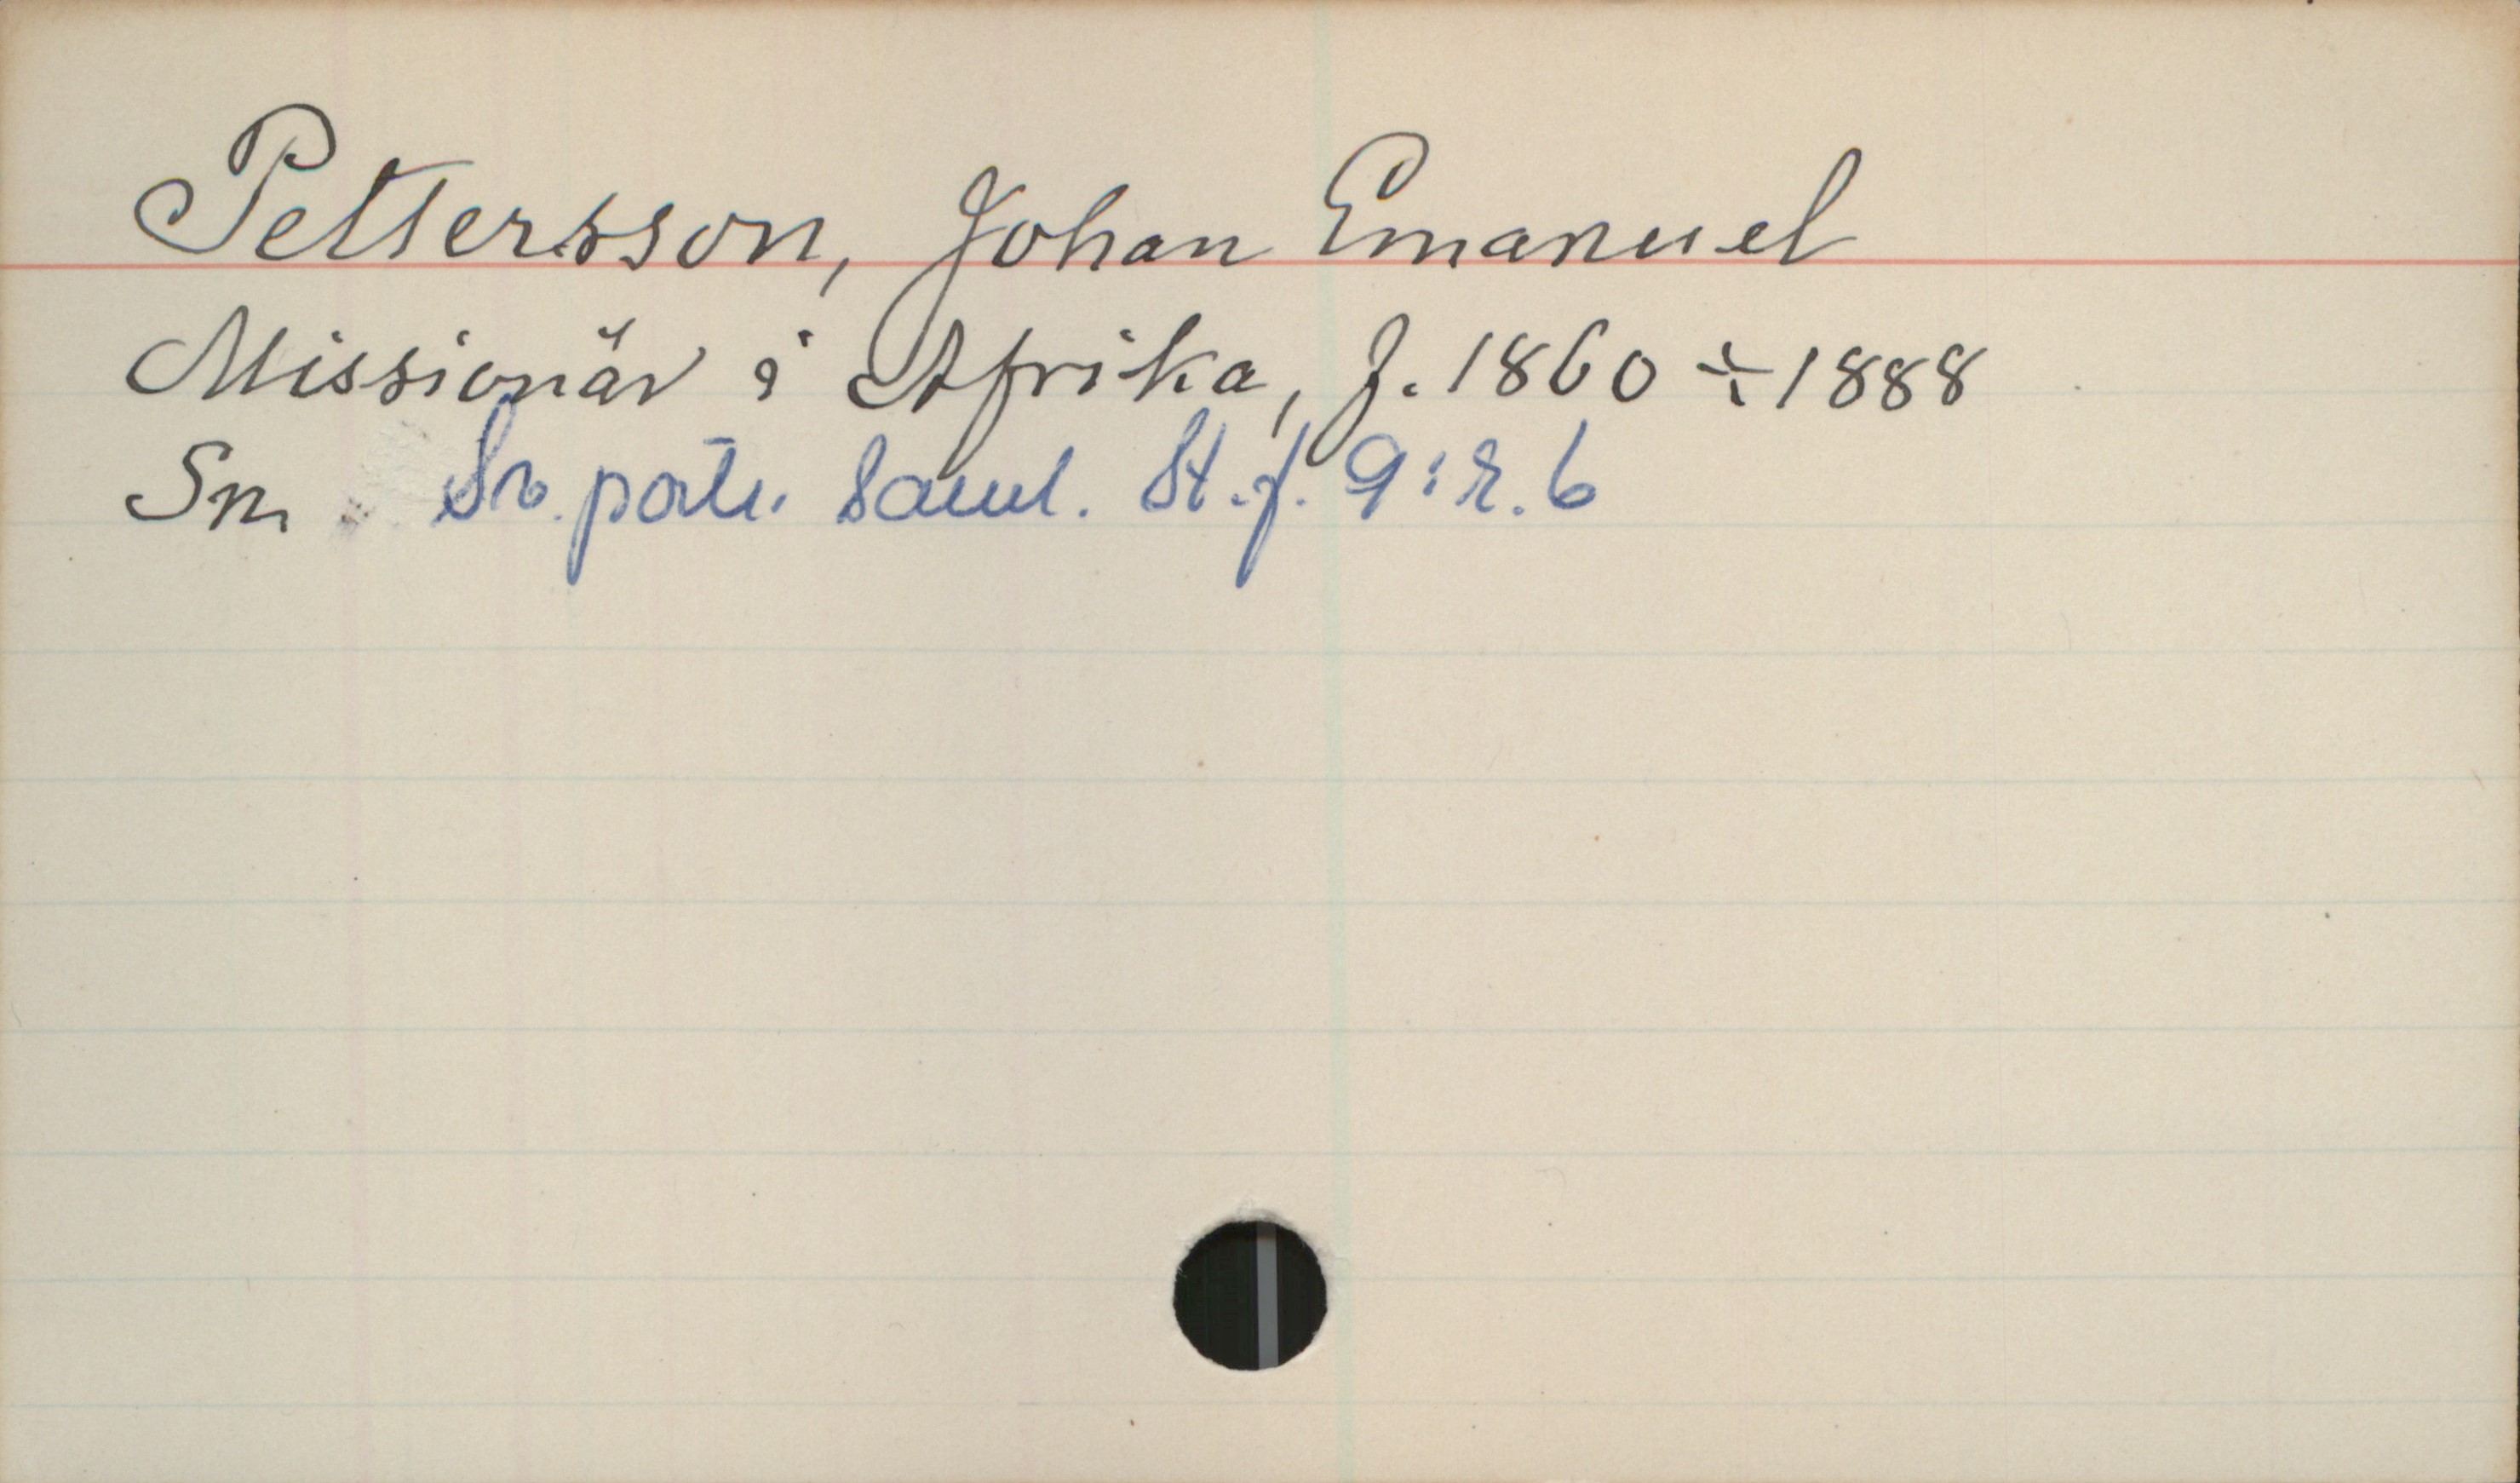 Pettersson, Johan Emanuel
Missionär i Afrika, f. 1860 ÷ 1888
Sn. Sv. portr. saml. St. f. 9:2. 6